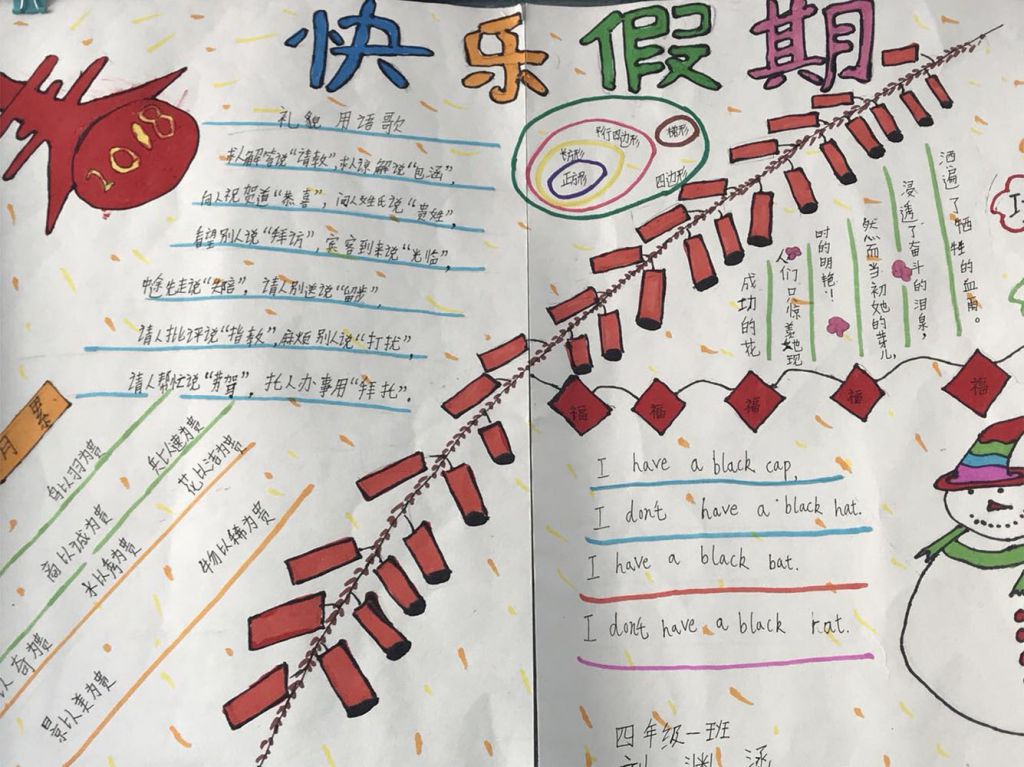 快乐假期
2018
礼貌用语歌
求人解答说“请教”，求人谅解说“包涵”，
向人祝贺道“恭喜”，问人姓氏说“贵姓”，
看望别人说“拜访”，宾客到来说“光临”，
中途先走说“失陪”，请人别送说“留步”，
请人批评说“指教”，麻烦别人说“打扰”，
请人帮忙说“劳驾”，托人办事用“拜托”。
月
鸟以羽为贵
兵以速为贵
商以诚为贵
花以洁为贵
水以清为贵
物以稀为贵
以奇为贵
景以美为贵
平行四边形
梯形
长方形
正方形
四边形
成功的花
人们只惊羡她现
时的明艳！
然而当初她的芽儿，
浸透了奋斗的泪泉，
洒遍了牺牲的血雨。
福
福
福
福
福
I have a black cap,
I don't have a black hat.
I have a black bat.
I don't have a black rat.
四年级一班